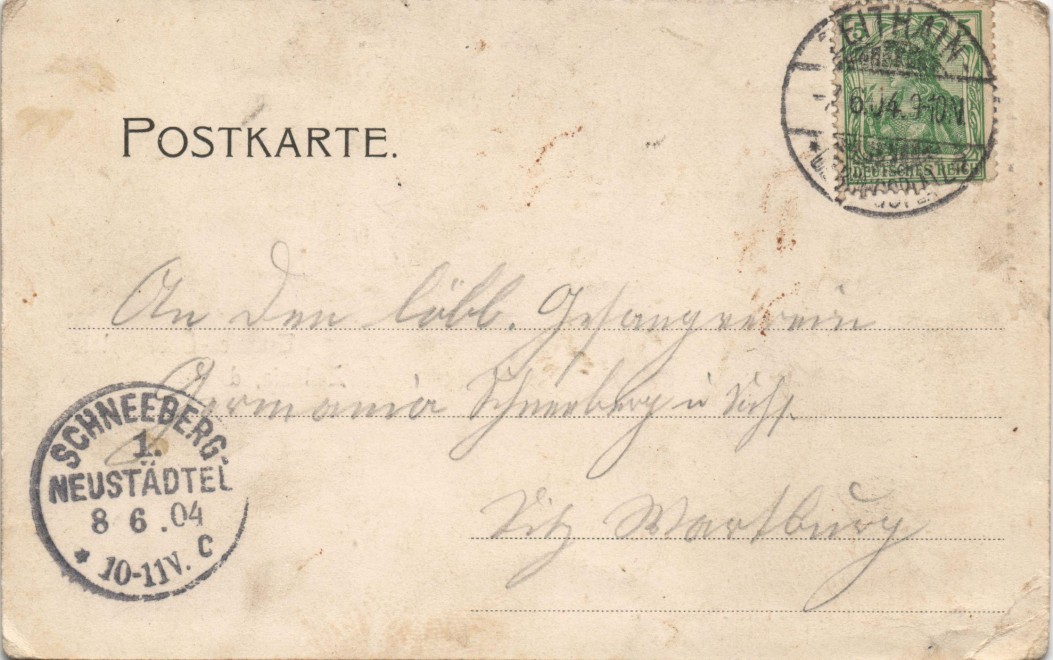 POSTKARTE.
ZEITHAIN
6.04.9-10N
DEUTSCHES REICH
An den löbl. Gesangverein
Germania Schneeberg i Sachs.
Sitz Wartburg
SCHNEEBERG-
1.
NEUSTÄDTEL
8 6 .04
* 10-11V. C